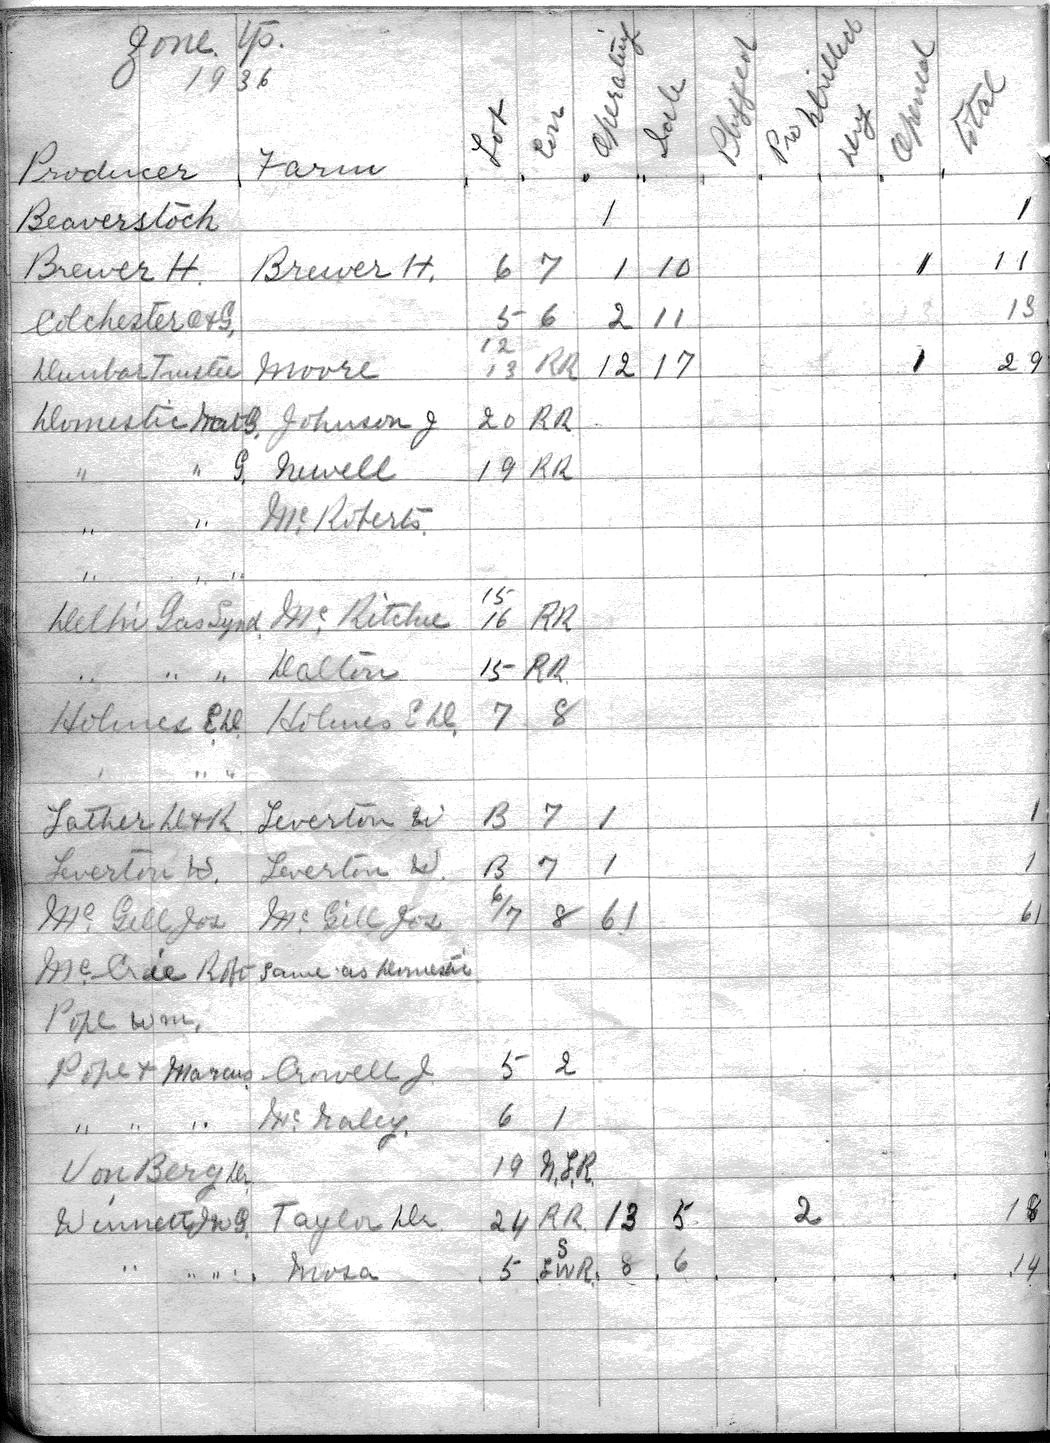 Zone Tp.
1936
Producer Farm Lot Con Operating Idle Plugged Pro Drilled Dry Opened Total
Beaverstock 1 1
Brewer H. Brewer H. 6 7 1 10 1 11
Colchester O & G. 5 6 2 11 13
Dunbar Trustee Moore 12 13 RR 12 17 1 29
Domestic Nat G. Johnson J 20 RR
" " G. Newell 19 RR
" " Mc Roberts.
" " "
Delhi Gas Synd. Mc Ritchie 15 16 RR
" " " Dalton 15 RR
Holmes E D. Holmes E D. 7 8
" " "
Lather D & R Leverton W B 7 1 1
Leverton W. Leverton W. B 7 1 1
Mc Gill Jos Mc Gill Jos 6/7 8 61 61
Mc Crie Robt same as Domestic
Pope Wm.
Pope & Marcus Crowell J 5 2
" " " 6 1
Von Berg Dr. 19 N.L.R.
Winnett Taylor Dr. 24 RR. 13 5 2 18
" " " " Mosa 5 8 6 14